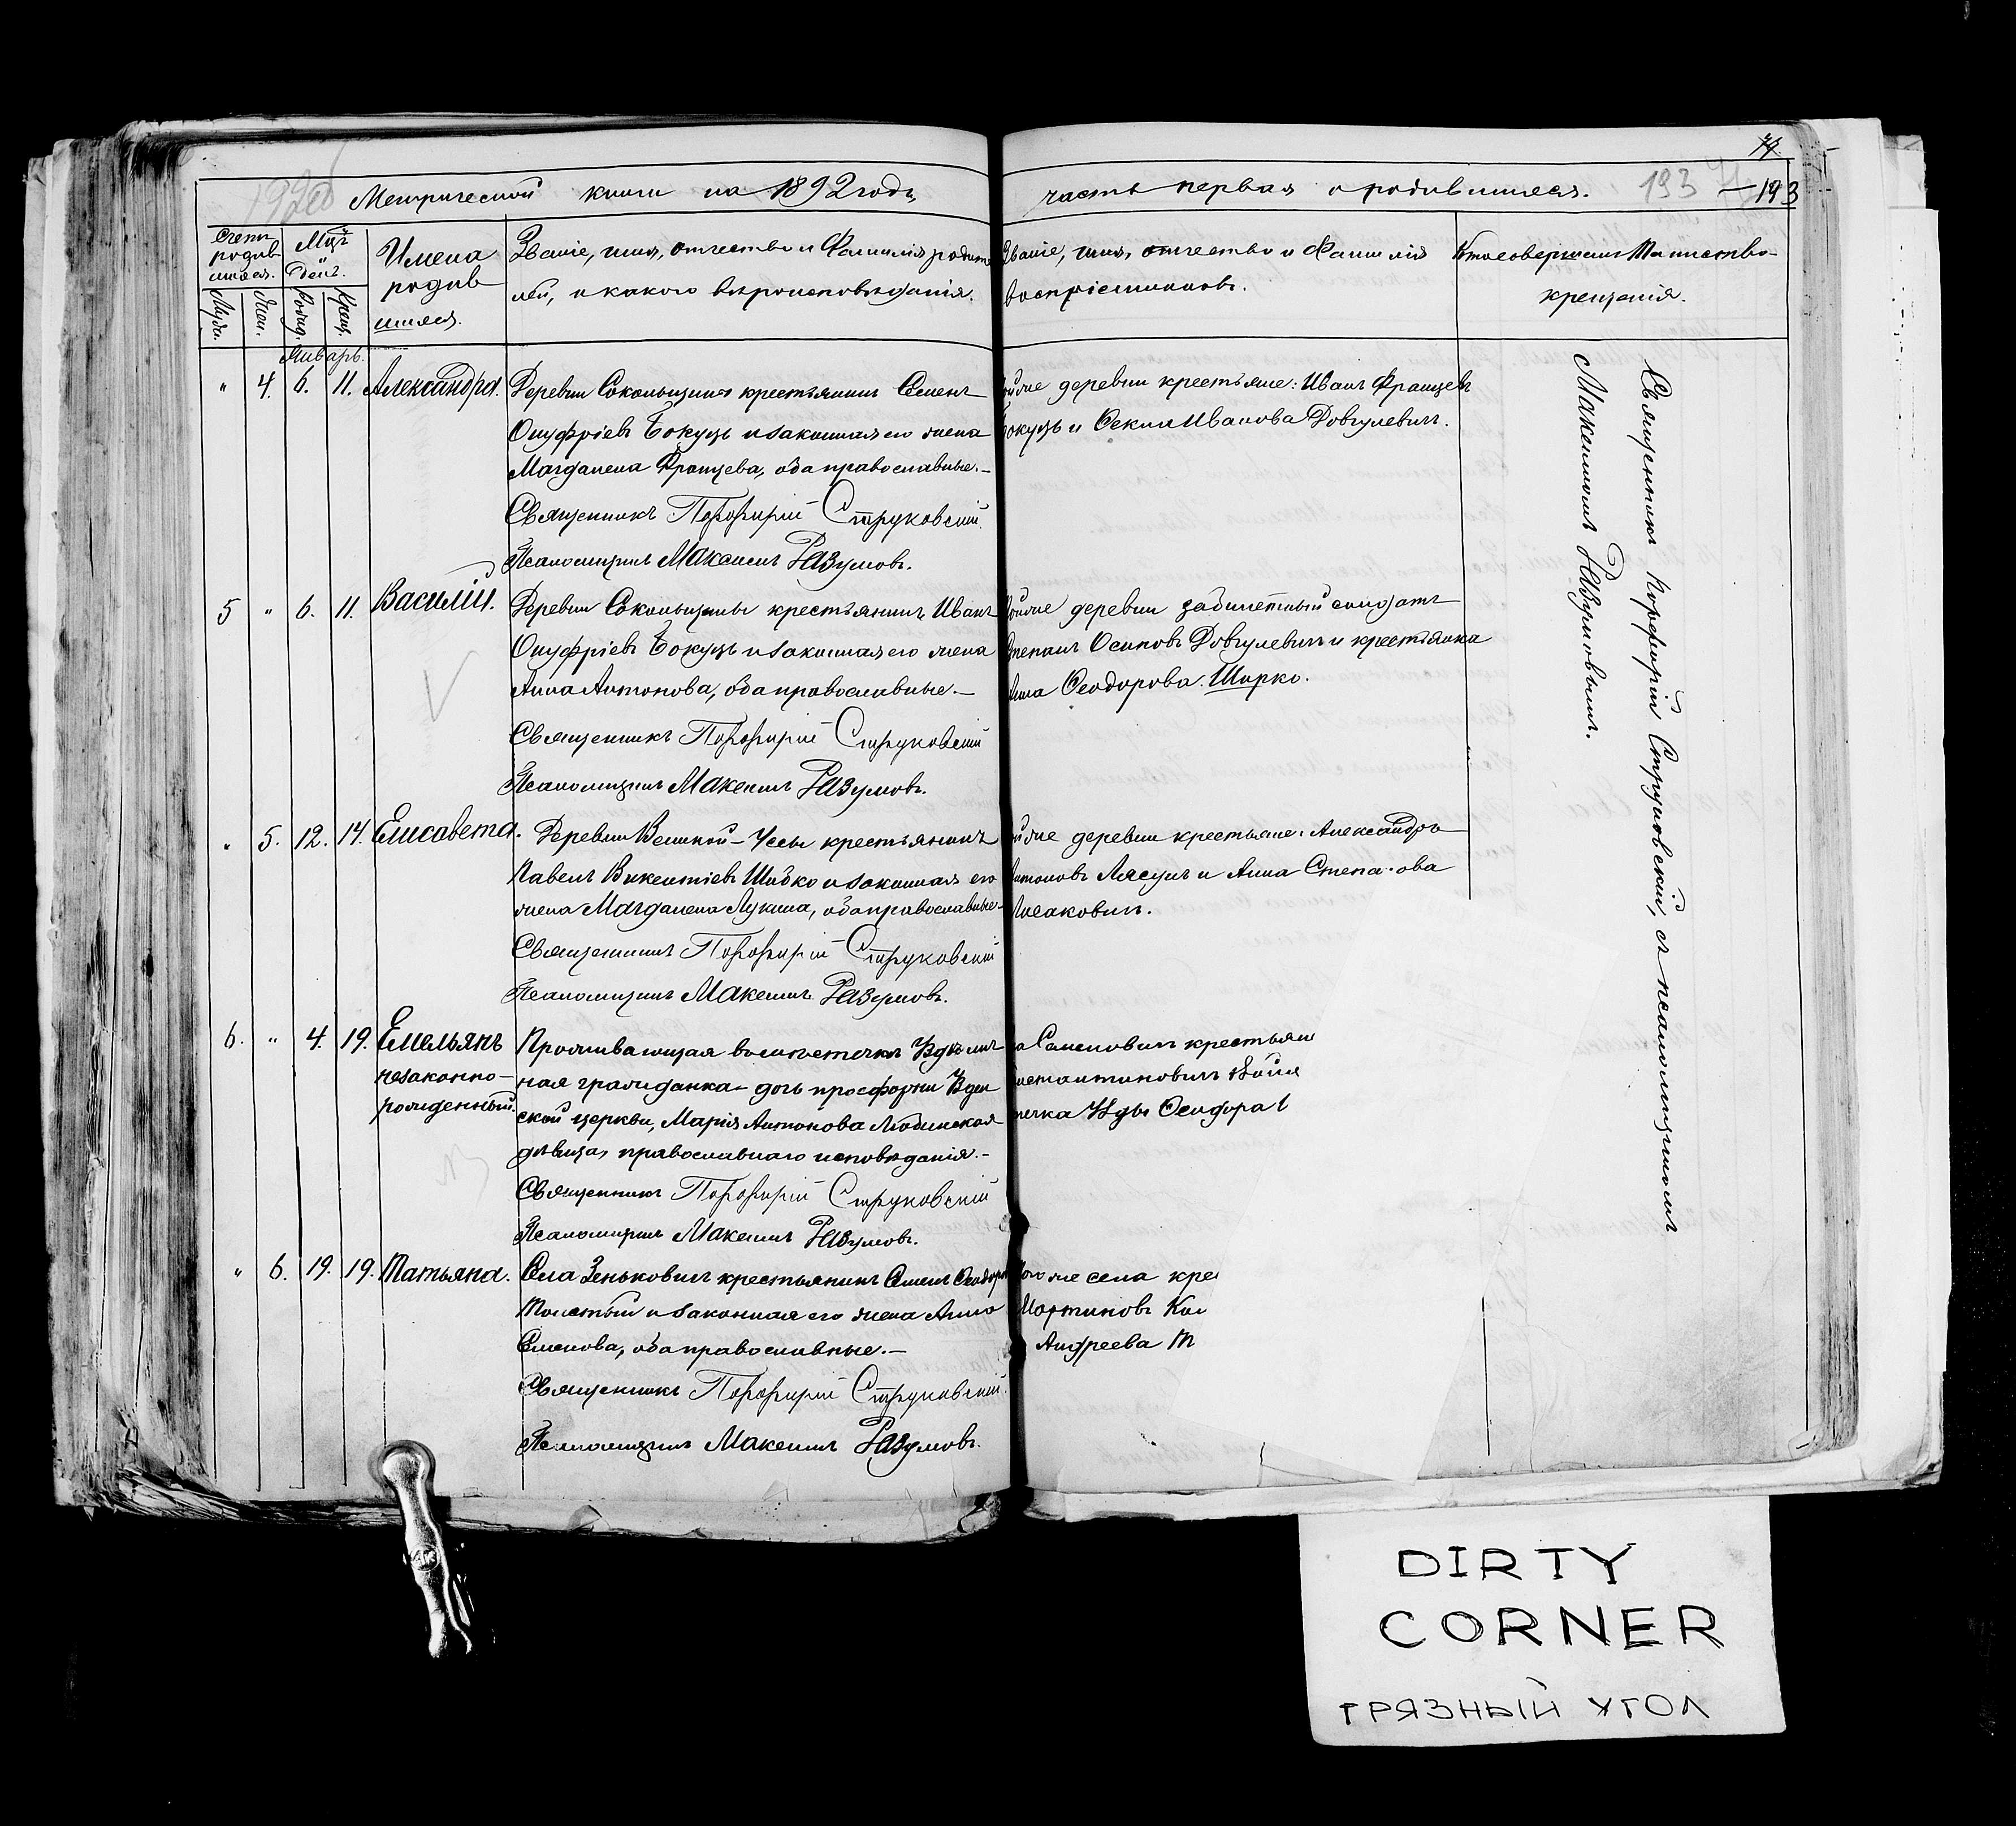 74.
Метрической книги на 1892 годъ
часть первая о родившихся. 193 — 193
Счетъ родив шихся.
Мцъ и день.
Имена родив шихся.
Званіе, имя, отчество и Фамилія родите
лей, и какого вѣроисповѣданія.
Званіе, имя, отчество и Фамилія
воспріемниковъ.
Кто совершалъ Таинство
крещенія.
Муж.
Жен.
Рожд.
Крещ.
Январь.
" 4. 6. 11. Александра.
Деревни Сокольщины крестьянинъ Семенъ
Онуфріевъ Бокуць и законная его жена
Магдалена Францева, оба православные.—
Священникъ Порфирій Струковскій.
Псаломщикъ Максимъ Разумовъ.
деревни крестьяне: Иванъ Францевъ
Бокуць и Фекла Иванова Довгулевичъ.
5 " 6. 11. Василій.
Деревни Сокольщины крестьянинъ Иванъ
Онуфріевъ Бокуць и законная его жена
Анна Антонова, оба православные.—
Священникъ Порфирій Струковскій
Псаломщикъ Максимъ Разумовъ.
деревни забилетный солдатъ
Степанъ Осиповъ Довгулевичъ и крестьянка
Анна Ѳеодорова Шорко.
" 5. 12. 14. Елисавета.
Деревни Великой-Уссы крестьянинъ
Павелъ Викентіевъ Шибко и законная его
жена Магдалена Лукина, оба православные—
Священникъ Порфирій Струковскій
Псаломщикъ Максимъ Разумовъ.
деревни крестьяне: Александръ
Антоновъ Лясунъ и Анна Степа ова
Лисаковичъ.
6. " 4. 19. Емельянъ
незаконно-
рожденный.
Проживающая въ мѣстечкѣ Уздѣ
ная гражданка дочь просфорни Узден
ской церкви, Марія Антонова Любинская
дѣвица, православнаго исповѣданія.—
Священникъ Порфирій Струковскій
Псаломщикъ Максимъ Разумовъ.
Семеновичъ крестьян
стантиновичъ
течка Узды Ѳеодора
" 6. 19. 19. Татьяна.
Села Зеньковичъ крестьянинъ Семенъ Ѳеодоро
Толстый и законная его жена Анна
Семенова, оба православные.—
Священникъ Порфирій Струковскій.
Псаломщикъ Максимъ Разумовъ.
Того же села кре
Мартиновъ Ко
Андреева Т
Священникъ Порфирій Струковскій, съ псаломщикомъ
Максимомъ Разумовымъ.
DIRTY
CORNER
ГРЯЗНЫЙ УГОЛ